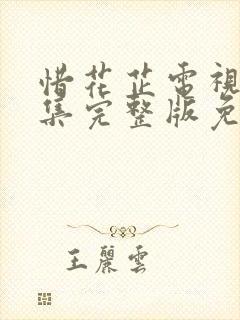 惜花芷電視
集完整版免
王麗雲